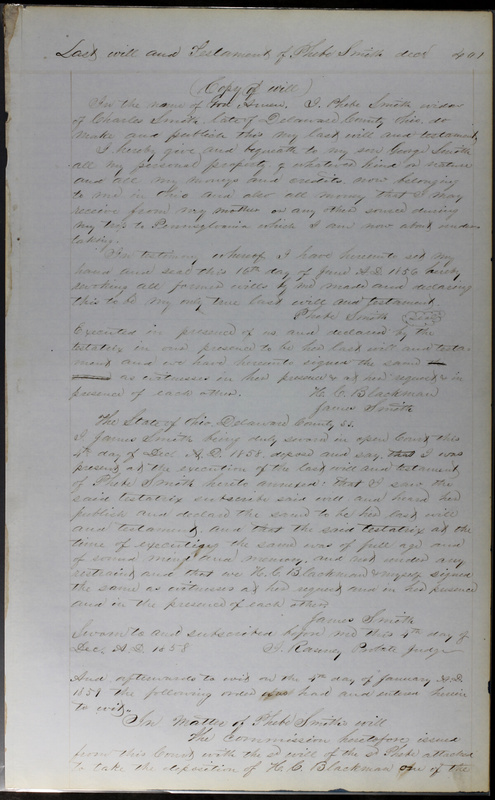 Last will and Testament of Phebe Smith decd 401
(Copy of will)
In the name of God Amen. I Phebe Smith widow
of Charles Smith, late of Delaware County Ohio, do
make and publish this my last will and testament
I hereby give and bequeath to my son George Smith
all my personal property of whatever kind or nature
and all my moneys and credits now belonging
to me in Ohio and also all money that I may
receive from my mother or any other source during
my trip to Pennsylvania which I am now about under
taking.
In testimony whereof I have hereunto set my
hand and seal this 16th day of June A.D. 1856 hereby
revoking all former wills by me made and declaring
this to be my only true last will and testament
Phebe Smith
Executed in presence of us and declared by the
testatrix in our presence to be her last will and testa-
ment and we have hereunto signed the same
as witnesses in her presence & at her request & in
presence of each other. H. C. Blackman
James Smith
The State of Ohio, Delaware County SS.
I James Smith being duly sworn in open Court this
4th day of Decl A.D. 1858. depose and say, that I was
present at the execution of the last will and testament
of Phebe Smith hereto annexed: that I saw the
said testatrix subscribe said will and heard her
publish and declare the same to be her last will
and testament, and that the said testatrix at the
time of executing the same was of full age and
of sound mind and memory, and not under any
restraint and that we H. C. Blackman & myself signed
the same as witnesses at her request and in her presence
and in the presence of each other
James Smith
Sworn to and subscribed before me this 4th day of
Decl A.D. 1858 Probate Judge
And afterwards to wit on the 4th day of January A.D.
1859 the following order was had and entered herein
to wit.
In Matter of Phebe Smiths will
The commission heretofore issued
from this Court with the will of the sd Phebe attached
to take the deposition of H. C. Blackman one of the